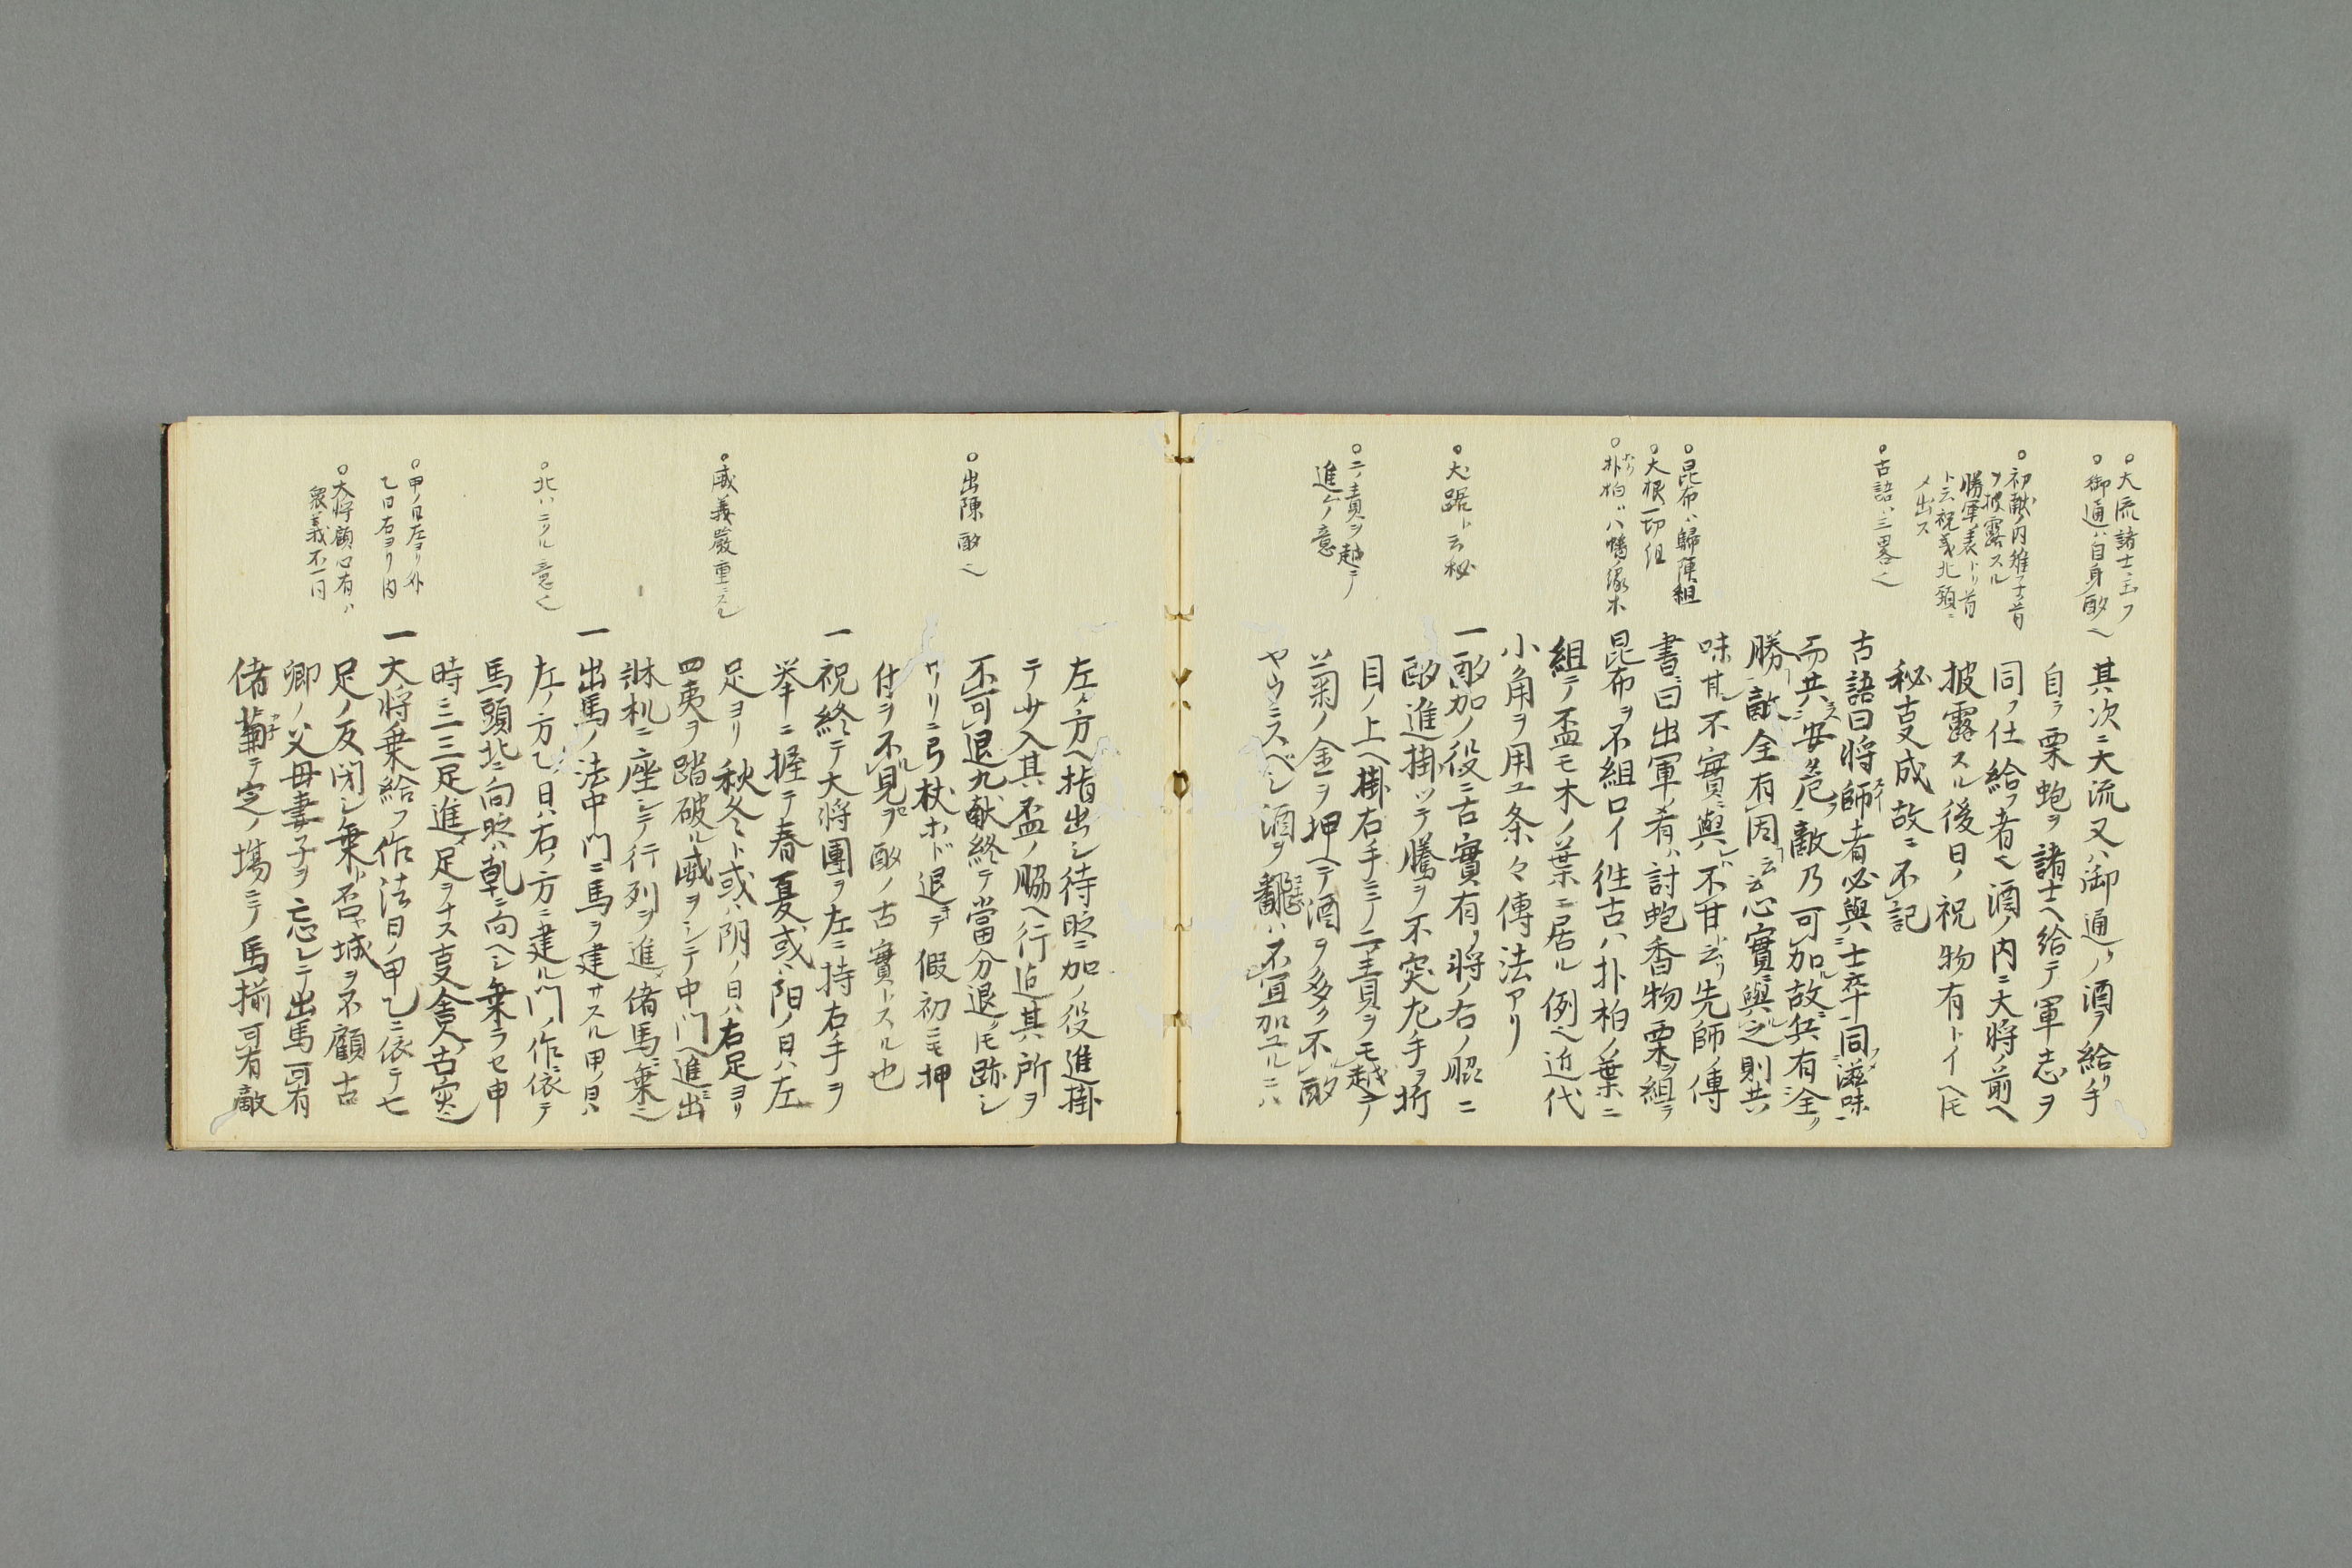 ○大流諸士ニ玉フ
○御通ハ自身酌也
○初献ノ内雉子ノ首
ヲ披露スル
勝軍表トリ首
ト云祝義北頭ニ
メ出ス
○古語ハ三畧也
○昆布ハ歸陣組
○大根一切組
○朴柏ハ八幡縁木
○犬踞ト云秘
○二ノ責ヲ越テ
進ムノ意
其次ニ大流又ハ御通ノ酒ヲ給リ手
自ラ栗蚫ヲ諸士ヘ給テ軍志ヲ
同フ仕給フ者也酒ノ内ニ大将ノ前ヘ
披露スル後日ノ祝物有トイヘ𪜈
秘叓成故ニ不記
古語曰将師者必與士卒同滋味
而共安危敵乃可加故兵有全
勝敵全有因云云心實ニ與之則共
味甘不實ニ與不甘ト云リ先師ノ傳
書曰出軍ノ肴ハ討蚫香物栗ヲ組テ
昆布ヲ不組ロイ徃古ハ朴柏ノ葉ニ
組テ盃モ木ノ葉ニ居ル例也近代
小角ヲ用ユ条々傳法アリ
一酌加ノ役ニ古實有リ将ノ右ノ脇ニ
酌進掛ツテ騰ヲ不突左手ヲ折
目ノ上ヘ掛右手ミノ二ノ責ヲモ越テ
菊ノ金ヲ押ヘテ酒ヲ多ク不酌
ヤウニスベシ酒ヲ翻ハ不宜加ユルニハ
○出陳酌也
○威義嚴重ニスル
○北ハニクル意也
○甲ノ日左ヨリ外
乙日右ヨリ内
○大将顧心有ハ
衆義不一同
左ノ方ヘ指出シ待時ニ加ノ役進掛
テ少入其盃ノ脇ヘ行迠其所ヲ
不可退九献終テ當分退𪜈跡シ
サリニ弓杖ホド退テ假初ニモ押
付ヲ不見ヲ酌ノ古實トスル也
一祝終テ大将團ヲ左ニ持右手ヲ
挙ニ握テ春夏或ハ陽ノ日ハ左
足ヨリ秋冬ト或ハ陰ノ日ハ右足ヨリ
四夷ヲ踏破ル威ヲシテ中門ヘ進出
牀机ニ座シテ行列ヲ進偖馬ニ乗也
一出馬ノ法中門ニ馬ヲ建サスル甲ノ日ハ
左ノ方乙ノ日ハ右ノ方ニ建ル門ノ作ニ依テ
馬頭北ニ向時ハ乾ニ向ヘシ乗ラセ申
時ニ三足進足ヲナス叓舎人古実也
一大将乗給フ作法日ノ甲乙ニ依テ七
足ノ反閇シ乗ト否ヤ城ヲ不顧古
郷ノ父母妻子ヲ忘レテ出馬可有
偖テ定ノ塲ニテ馬揃可有敵